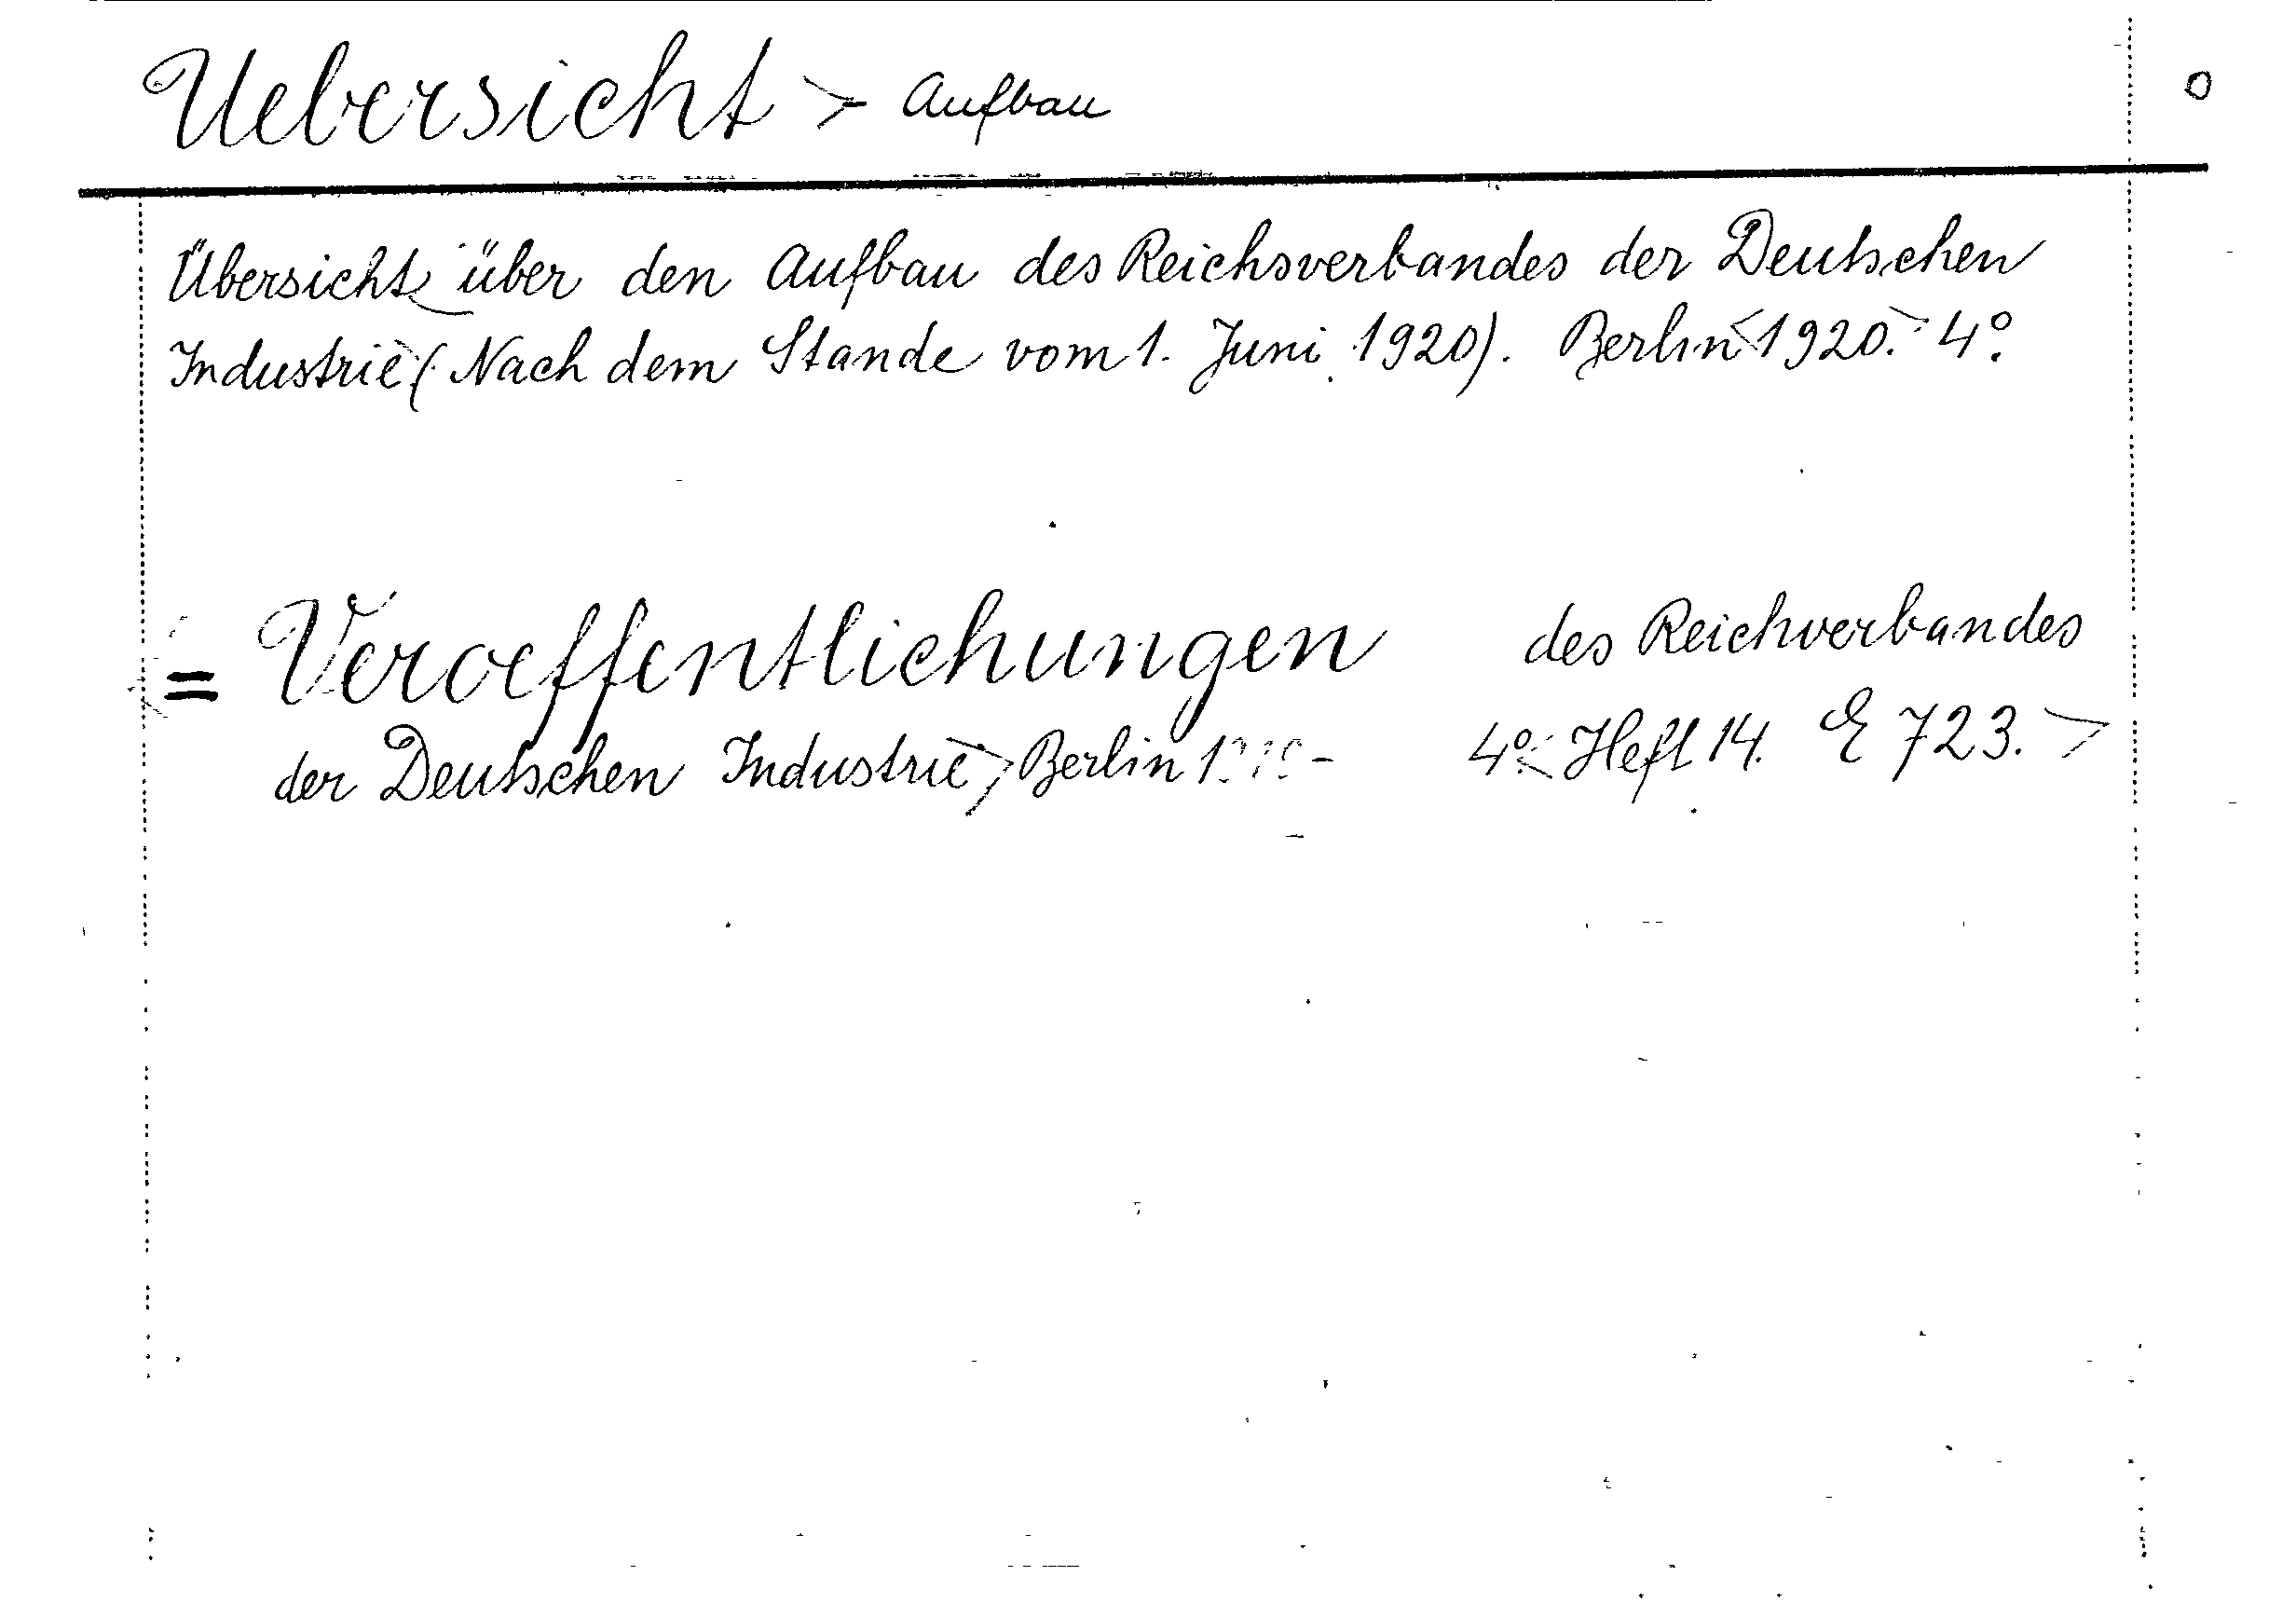 Uebersicht > Aufbau O
Übersicht über den Aufbau des Reichsverbandes der Deutschen
Industrie (Nach dem Stande vom 1. Juni 1920). Berlin <1920.> 4°.
= Veroeffentlichungen des Reichverbandes
der Deutschen Industrie, Berlin 4°. < Heft 14. E 723. >